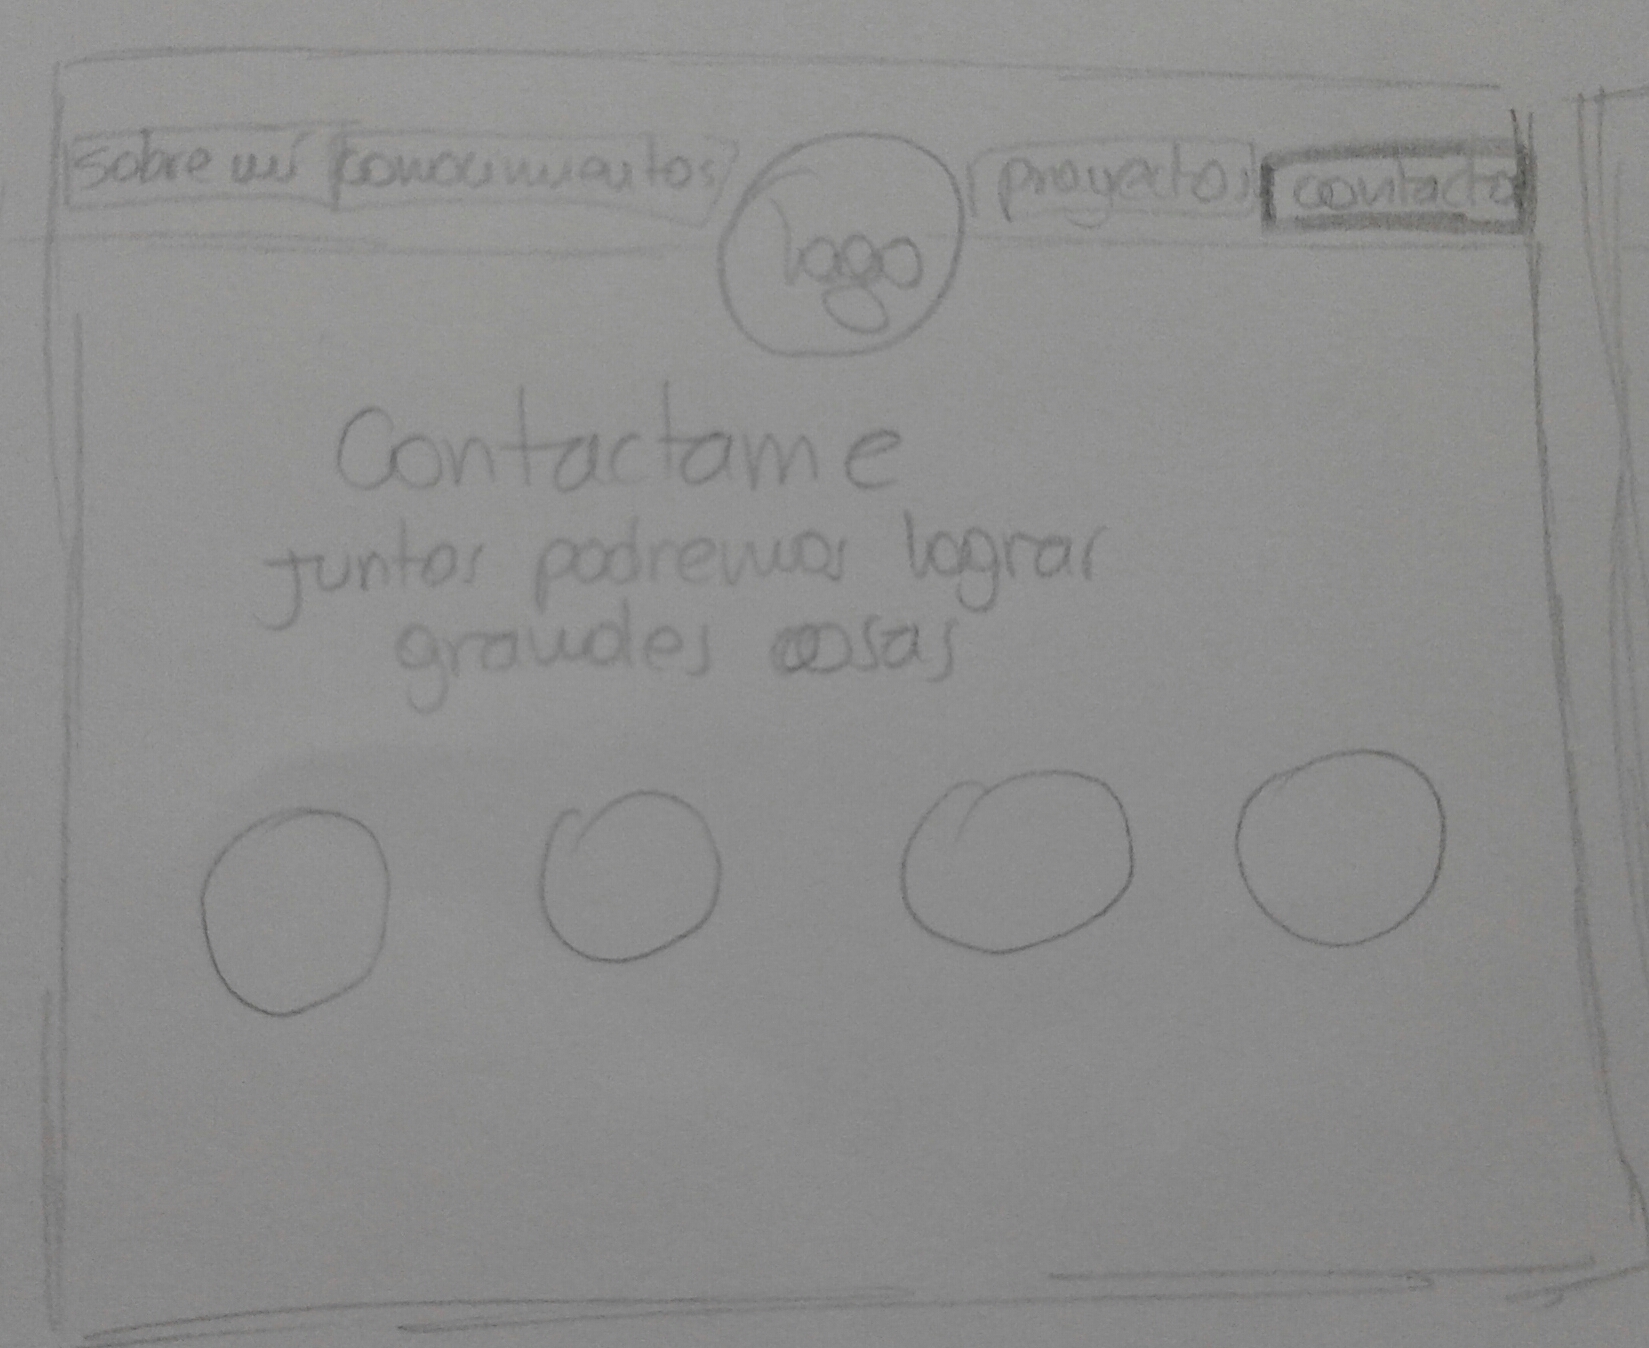 sobre mi conocimientos proyectos contacto
logo
Contactame
Juntos podremos lograr
grandes cosas